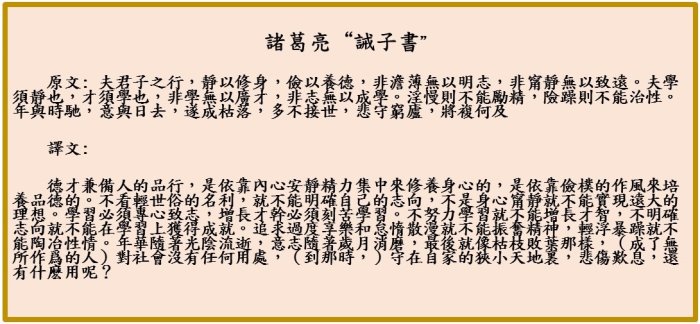 諸葛亮“誡子書”
原文：夫君子之行，靜以修身，儉以養德，非澹薄無以明志，非甯靜無以致遠。夫學
須靜也，才須學也，非學無以廣才，非志無以成學。淫慢則不能勵精，險躁則不能治性。
年與時馳，意與日去，遂成枯落，多不接世，悲守窮廬，將複何及
譯文：
德才兼備人的品行，是依靠內心安靜精力集中來修養身心的，是依靠儉樸的作風來培
養品德的。不看輕世俗的名利，就不能明確自己的志向，不是身心甯靜就不能實現遠大的
理想。學習必須專心致志，增長才幹必須刻苦學習。不努力學習就不能增長才智，不明確
志向就不能在學習上獲得成就。追求過度享樂和怠惰散漫就不能振奮精神，輕浮暴躁就不
能陶冶性情。年華隨著光陰流逝，意志隨著歲月消磨，最後就像枯枝敗葉那樣，（成了無
所作爲的人）對社會沒有任何用處，（到那時，）守在自家的狹小天地裏，悲傷歎息，還
有什麽用呢？